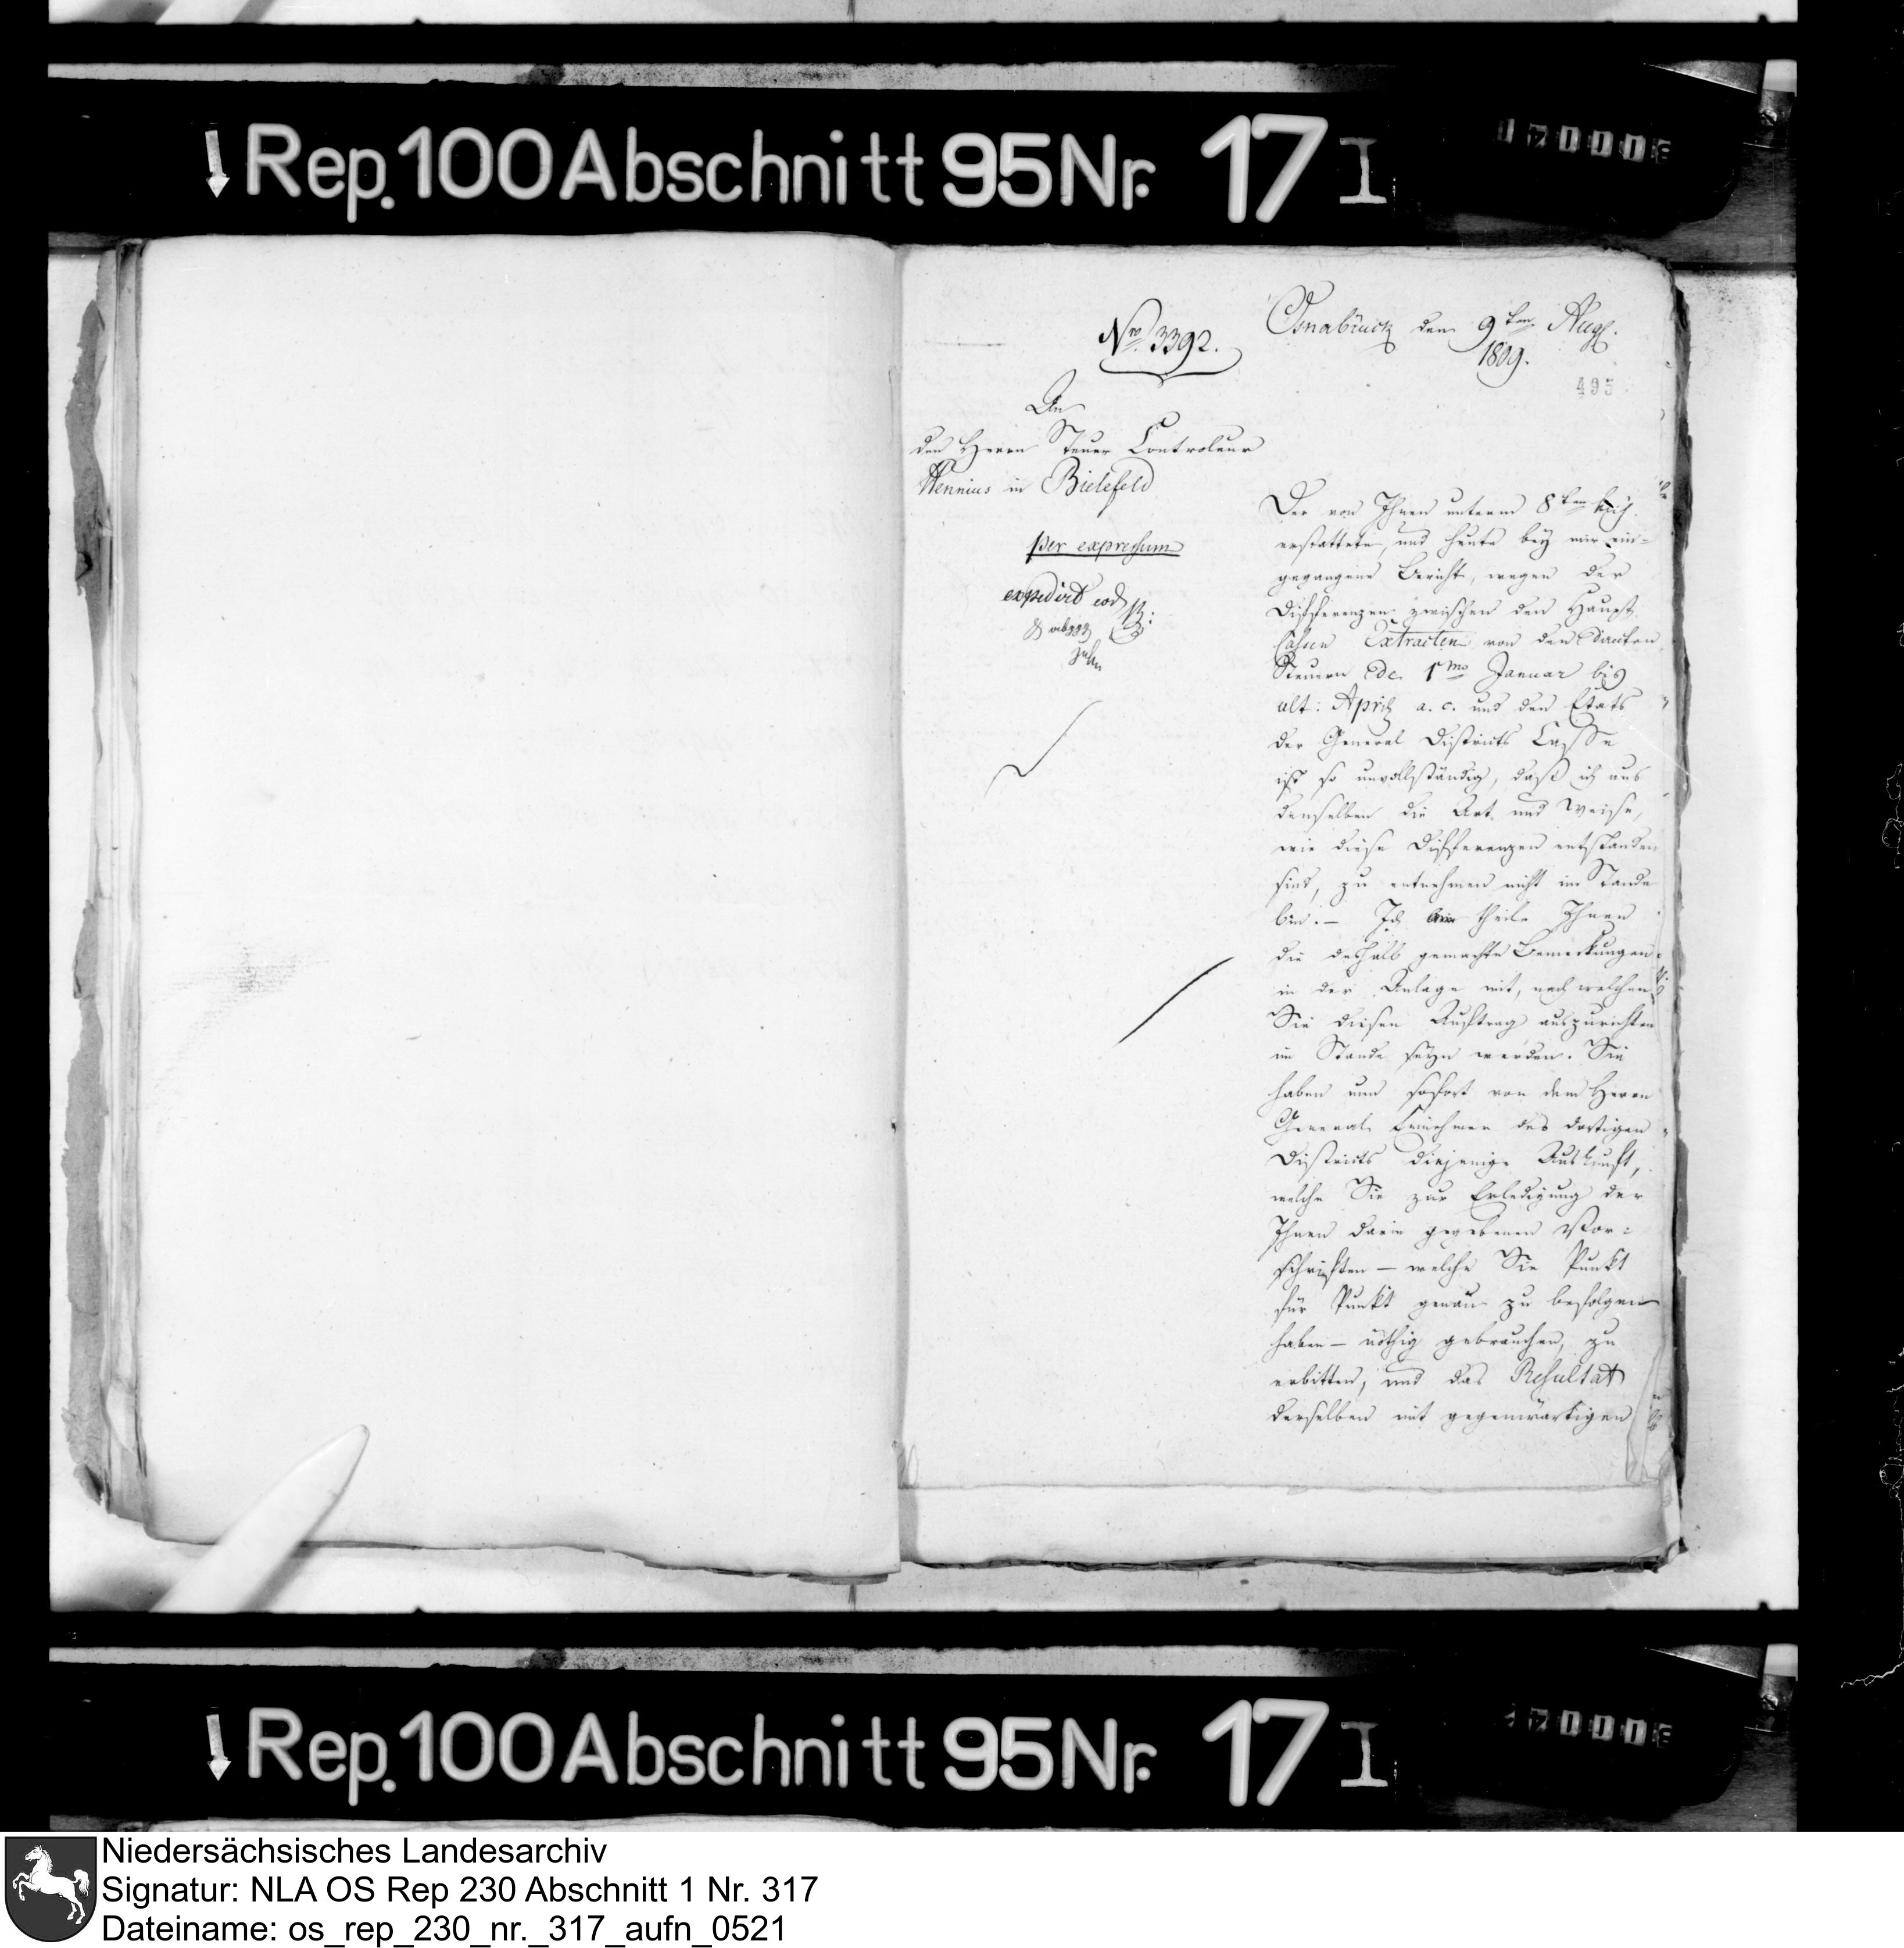 Rep. 100 Abschnitt 95 Nr. 17 I
Nro 3392.
Osnabrück den 9ten Aug.
1809.
495
An
den Herrn Steuer Controleur
Wennius in Bielefeld
per expressum
expedirt eod
Der von Ihnen unterm 8ten huj.
erstattete, und heute bey mir ein-
gegangene Bericht, wegen der
Differenzen zwischen den Haupt
Cassen Extracten von den directen
Steuern de 1mo Januar bis
ult: April a. c. und den Etats
der General Districts Casse
ist so unvollständig, daß ich aus
denselben die Art und Weise,
wie diese Differenzen entstanden
sind, zu entnehmen nicht im Stande
bin. – Ich theile Ihnen
die deshalb gemachte Bemerkungen
in der Anlage mit, nach welchen
Sie diesen Auftrag auszurichten
im Stande seyn werden. Sie
haben nun sofort von dem Herrn
General Einnehmer des dortigen
Districts diejenige Auskunft,
welche Sie zur Erledigung der
Ihnen darin gegebenen Vor-
schriften – welche Sie Punkt
für Punkt genau zu befolgen
haben – nöthig gebrauchen, zu
erbitten, und das Resultat
derselben mit gegenwärtigen
Rep. 100 Abschnitt 95 Nr. 17 I
Niedersächsisches Landesarchiv
Signatur: NLA OS Rep 230 Abschnitt 1 Nr. 317
Dateiname: os_rep_230_nr._317_aufn_0521